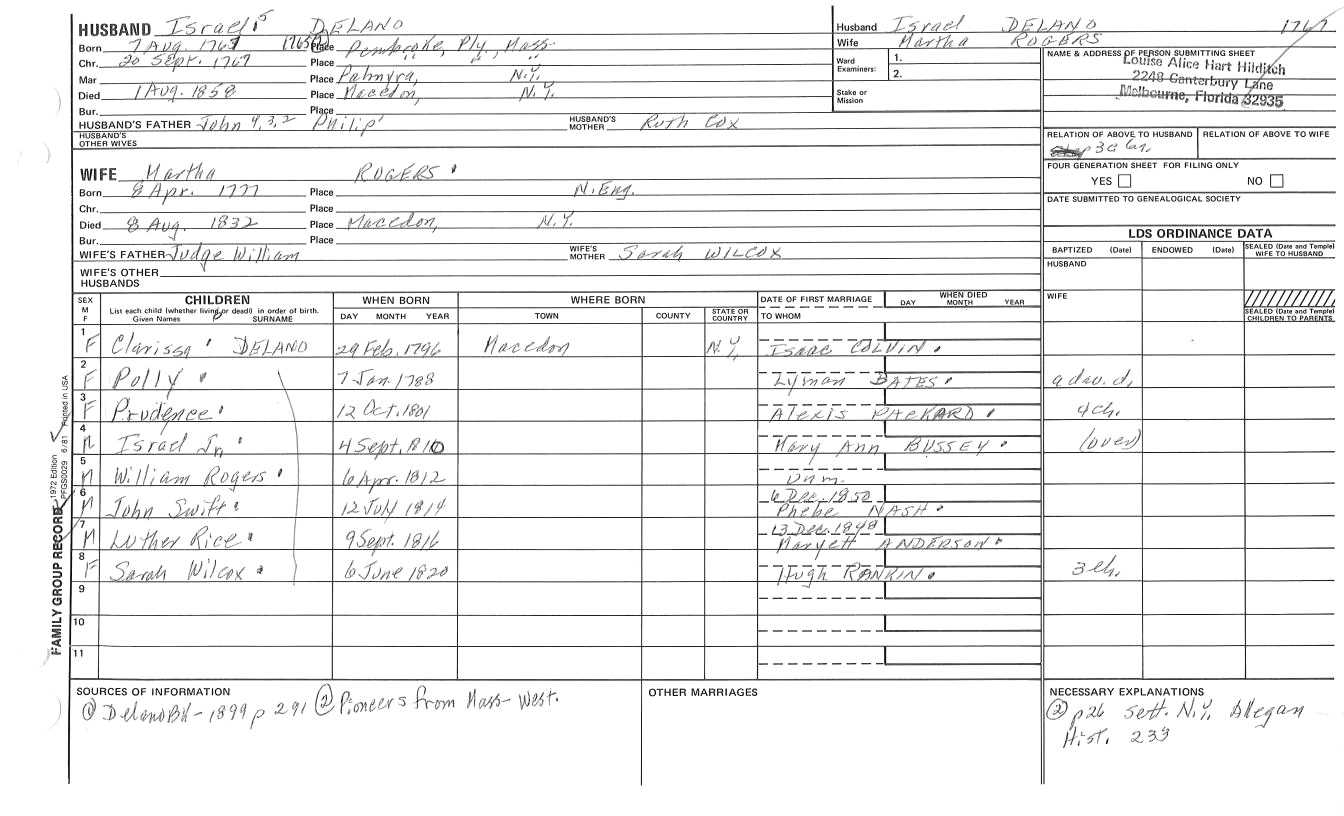 HUSBAND Israel 5 DELANO
Born 7 Aug. 1767 1765 (2) Place Pembroke, Ply, Mass.
Chr. 20 Sept. 1767 Place " "
Mar Place Palmyra, N.Y.
Died 1 Aug. 1858 Place Macedon, N.Y.
Bur. Place
HUSBAND'S FATHER John 4,3,2 Philip 1 HUSBAND'S MOTHER Ruth COX
HUSBAND'S OTHER WIVES
WIFE Martha ROGERS
Born 8 Apr. 1777 Place N. Eng.
Chr. Place
Died 8 Aug. 1832 Place Macedon, N.Y.
Bur. Place
WIFE'S FATHER Judge William WIFE'S MOTHER Sarah WILCOX
WIFE'S OTHER HUSBANDS
Husband Israel DELANO 1767
Wife Martha ROGERS
Ward Examiners: 1.
2.
Stake or Mission
NAME & ADDRESS OF PERSON SUBMITTING SHEET
Louise Alice Hart Hilditch
2248 Canterbury Lane
Melbourne, Florida 32935
RELATION OF ABOVE TO HUSBAND RELATION OF ABOVE TO WIFE
FOUR GENERATION SHEET FOR FILING ONLY
YES NO
DATE SUBMITTED TO GENEALOGICAL SOCIETY
LDS ORDINANCE DATA
BAPTIZED (Date) ENDOWED (Date) SEALED (Date and Temple) WIFE TO HUSBAND
HUSBAND
WIFE
SEALED (Date and Temple) CHILDREN TO PARENTS
SEX M F CHILDREN List each child (whether living or dead) in order of birth. Given Names SURNAME WHEN BORN DAY MONTH YEAR WHERE BORN TOWN COUNTY STATE OR COUNTRY DATE OF FIRST MARRIAGE TO WHOM WHEN DIED DAY MONTH YEAR
1 F Clarissa DELANO 29 Feb. 1796 Macedon N.Y. Isaac COLVIN
2 F Polly 7 Jan. 1788 Lyman BATES a dau. d.
3 F Prudence 12 Oct. 1801 Alexis PACKARD 4 ch.
4 M Israel Jr. 4 Sept. 1810 Mary Ann BUSSEY (over)
5 M William Rogers 6 Apr. 1812 Unm.
6 M John Swift 12 July 1814 6 Dec. 1850 Phebe NASH
7 M Luther Rice 9 Sept. 1816 13 Dec. 1848 Maryett ANDERSON
8 F Sarah Wilcox 6 June 1820 Hugh RANKIN 3 ch.
9
10
11
FAMILY GROUP RECORD 1972 Edition PFGS0029 6/81 Printed in USA
SOURCES OF INFORMATION
(1) Delano BK - 1899 p 291 (2) Pioneers from Mass - West.
OTHER MARRIAGES
NECESSARY EXPLANATIONS
(2) p26 Sett. N.Y. Allegan
Hist. 233